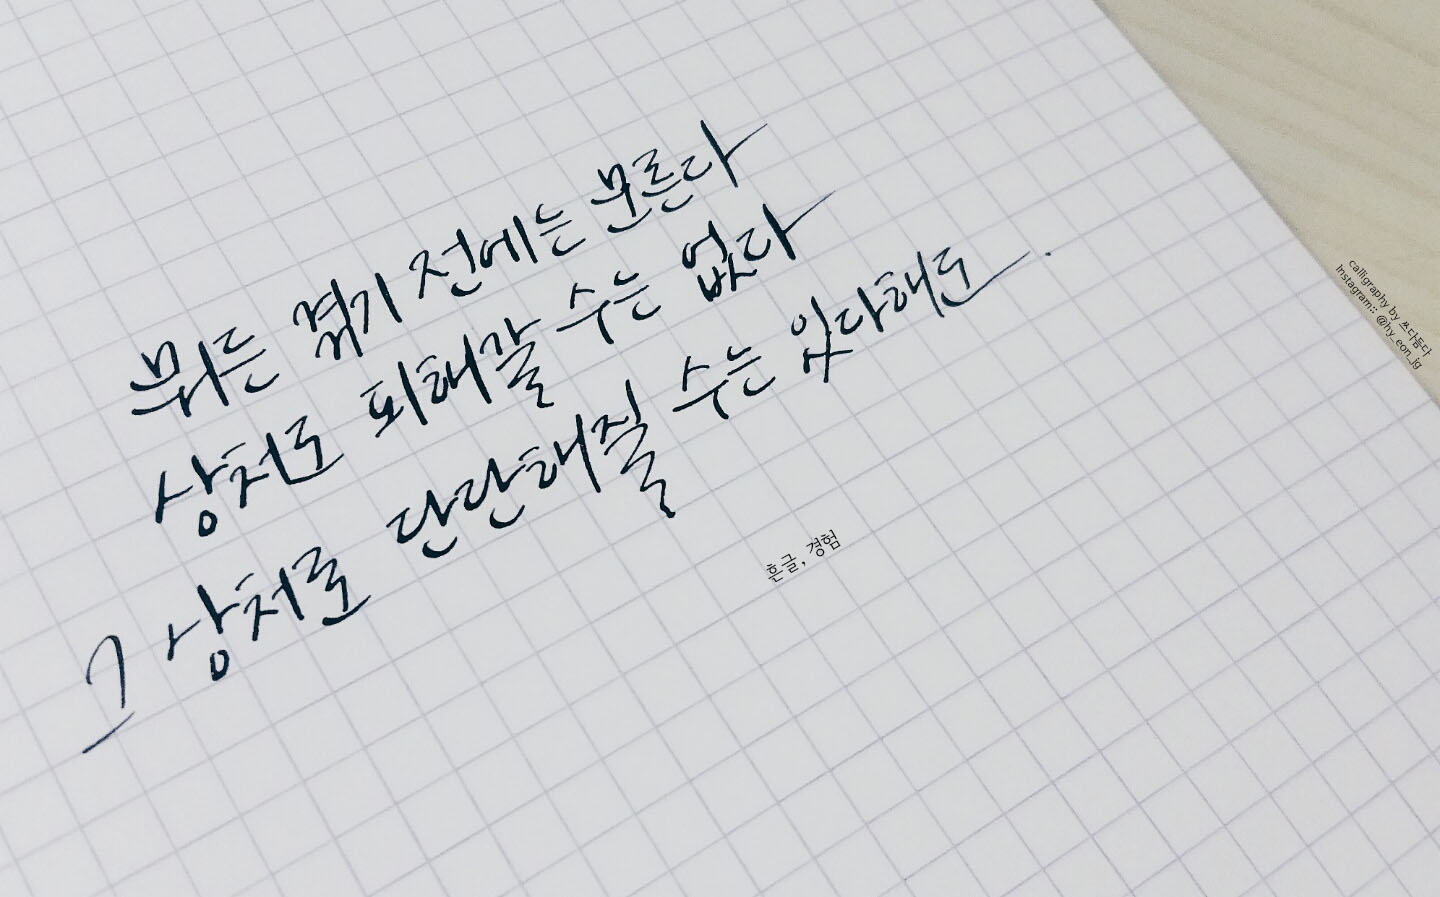 뭐든 겪기 전에는 모른다
상처도 피해갈 수는 없다
그 상처로 단단해질 수는 있다해도.
흔글, 경험
calligraphy by 쓰다듬다
Instagram:: @hy_eon_jg